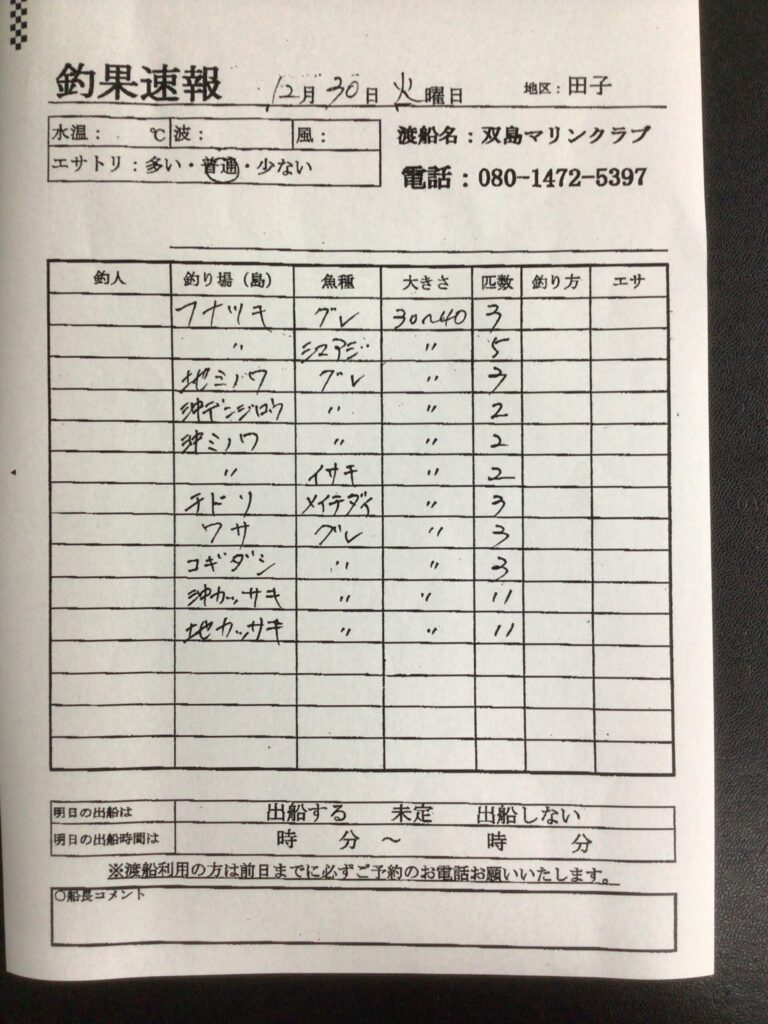 釣果速報 12月30日 火曜日 地区：田子
水温： ℃ 波： 風： 渡船名：双島マリンクラブ
エサトリ：多い・普通・少ない 電話：080-1472-5397
釣人 釣り場（島） 魚種 大きさ 匹数 釣り方 エサ
フナツキ グレ 30~40 3
〃 シマアジ 〃 5
地ミノワ グレ 〃 3
沖デンジロウ 〃 〃 2
沖ミノワ 〃 〃 2
〃 イサキ 〃 2
チドリ メイチダイ 〃 3
ワサ グレ 〃 3
コギダシ 〃 〃 3
沖カッサキ 〃 〃 11
地カッサキ 〃 〃 11
明日の出船は 出船する 未定 出船しない
明日の出船時間は 時 分 ～ 時 分
※渡船利用の方は前日までに必ずご予約のお電話お願いいたします。
○船長コメント